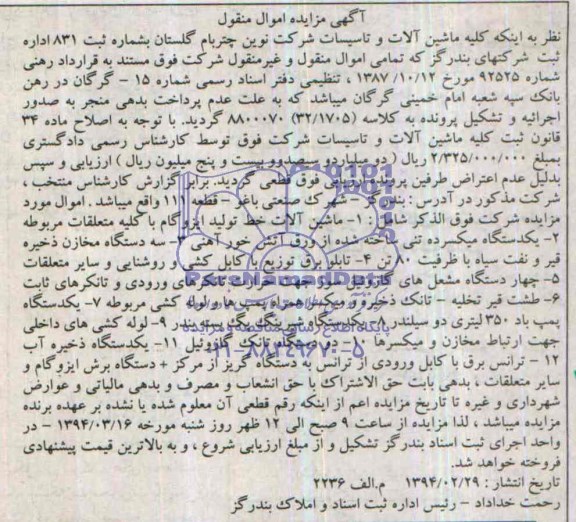 آگهی مزایده اموال منقول
نظر به اینکه کلیه ماشین آلات و تاسیسات شرکت نوین چتربام گلستان بشماره ثبت ۸۳۱ اداره
ثبت شرکتهای بندرگز که تمامی اموال منقول و غیرمنقول شرکت فوق مستند به قرارداد رهنی
شماره ۹۲۵۲۵ مورخ ۱۳۸۷/۱۰/۱۲ ، تنظیمی دفتر اسناد رسمی شماره ۱۵ - گرگان در رهن
بانک سپه شعبه امام خمینی گرگان میباشد که به علت عدم پرداخت بدهی منجر به صدور
اجرائیه و تشکیل پرونده به کلاسه (۳۲/۱۷۰۵) ۸۸۰۰۰۷۰ گردید. با توجه به اصلاح ماده ۳۴
قانون ثبت کلیه ماشین آلات و تاسیسات شرکت فوق توسط کارشناس رسمی دادگستری
بمبلغ ۲/۳۲۵/۰۰۰/۰۰۰ ریال ( دو میلیاردو سیصدوو بیست و پنج میلیون ریال ) ارزیابی و سپس
بدلیل عدم اعتراض طرفین پرونده ارزیابی فوق قطعی گردید. برابر گزارش کارشناس منتخب ،
شرکت مذکور در آدرس : بندرگز - شهرک صنعتی باغو - قطعه ۱۱۱ واقع میباشد . اموال مورد
مزایده شرکت فوق الذکر شامل : ۱- ماشین آلات خط تولید ایزوگام با کلیه متعلقات مربوطه
۲- یکدستگاه میکسرده تنی ساخته شده از ورق آتش خور آهنی ۳- سه دستگاه مخازن ذخیره
قیر و نفت سیاه با ظرفیت ۸۰ تن ۴- تابلو برق توزیع با کابل کشی و روشنایی و سایر متعلقات
۵- چهار دستگاه مشعل های گازوئیل سوز جهت حرارت تانکرهای ورودی و تانکرهای ثابت
۶- طشت قیر تخلیه - تانک ذخیره و میکسر همراه پمپ ها و لوله کشی مربوطه ۷- یکدستگاه
پمپ باد ۳۵۰ لیتری دو سیلندر ۸- یکدستگاه شیرینگ پک سیلندر ۹- لوله کشی های داخلی
جهت ارتباط مخازن و میکسرها ۱۰- دو دستگاه تانک گازوئیل ۱۱- یکدستگاه ذخیره آب
۱۲ - ترانس برق با کابل ورودی از ترانس به دستگاه گریز از مرکز + دستگاه برش ایزوگام و
سایر متعلقات ، بدهی بابت حق الاشتراک یا حق انشعاب و مصرف و بدهی مالیاتی و عوارض
شهرداری و غیره تا تاریخ مزایده اعم از اینکه رقم قطعی آن معلوم شده یا نشده بر عهده برنده
مزایده میباشد ، لذا مزایده از ساعت ۹ صبح الی ۱۲ ظهر روز شنبه مورخه ۱۳۹۴/۰۳/۱۶ - در
واحد اجرای ثبت اسناد بندرگز تشکیل و از مبلغ ارزیابی شروع ، و به بالاترین قیمت پیشنهادی
فروخته خواهد شد.
تاریخ انتشار : ۱۳۹۴/۰۲/۲۹ م.الف ۲۲۳۶
رحمت خداداد - رئیس اداره ثبت اسناد و املاک بندرگز
ParsNamadData
پایگاه اطلاع رسانی مناقصه و مزایده
۰۲۱-۸۸۳۴۹۶۷۰-۵